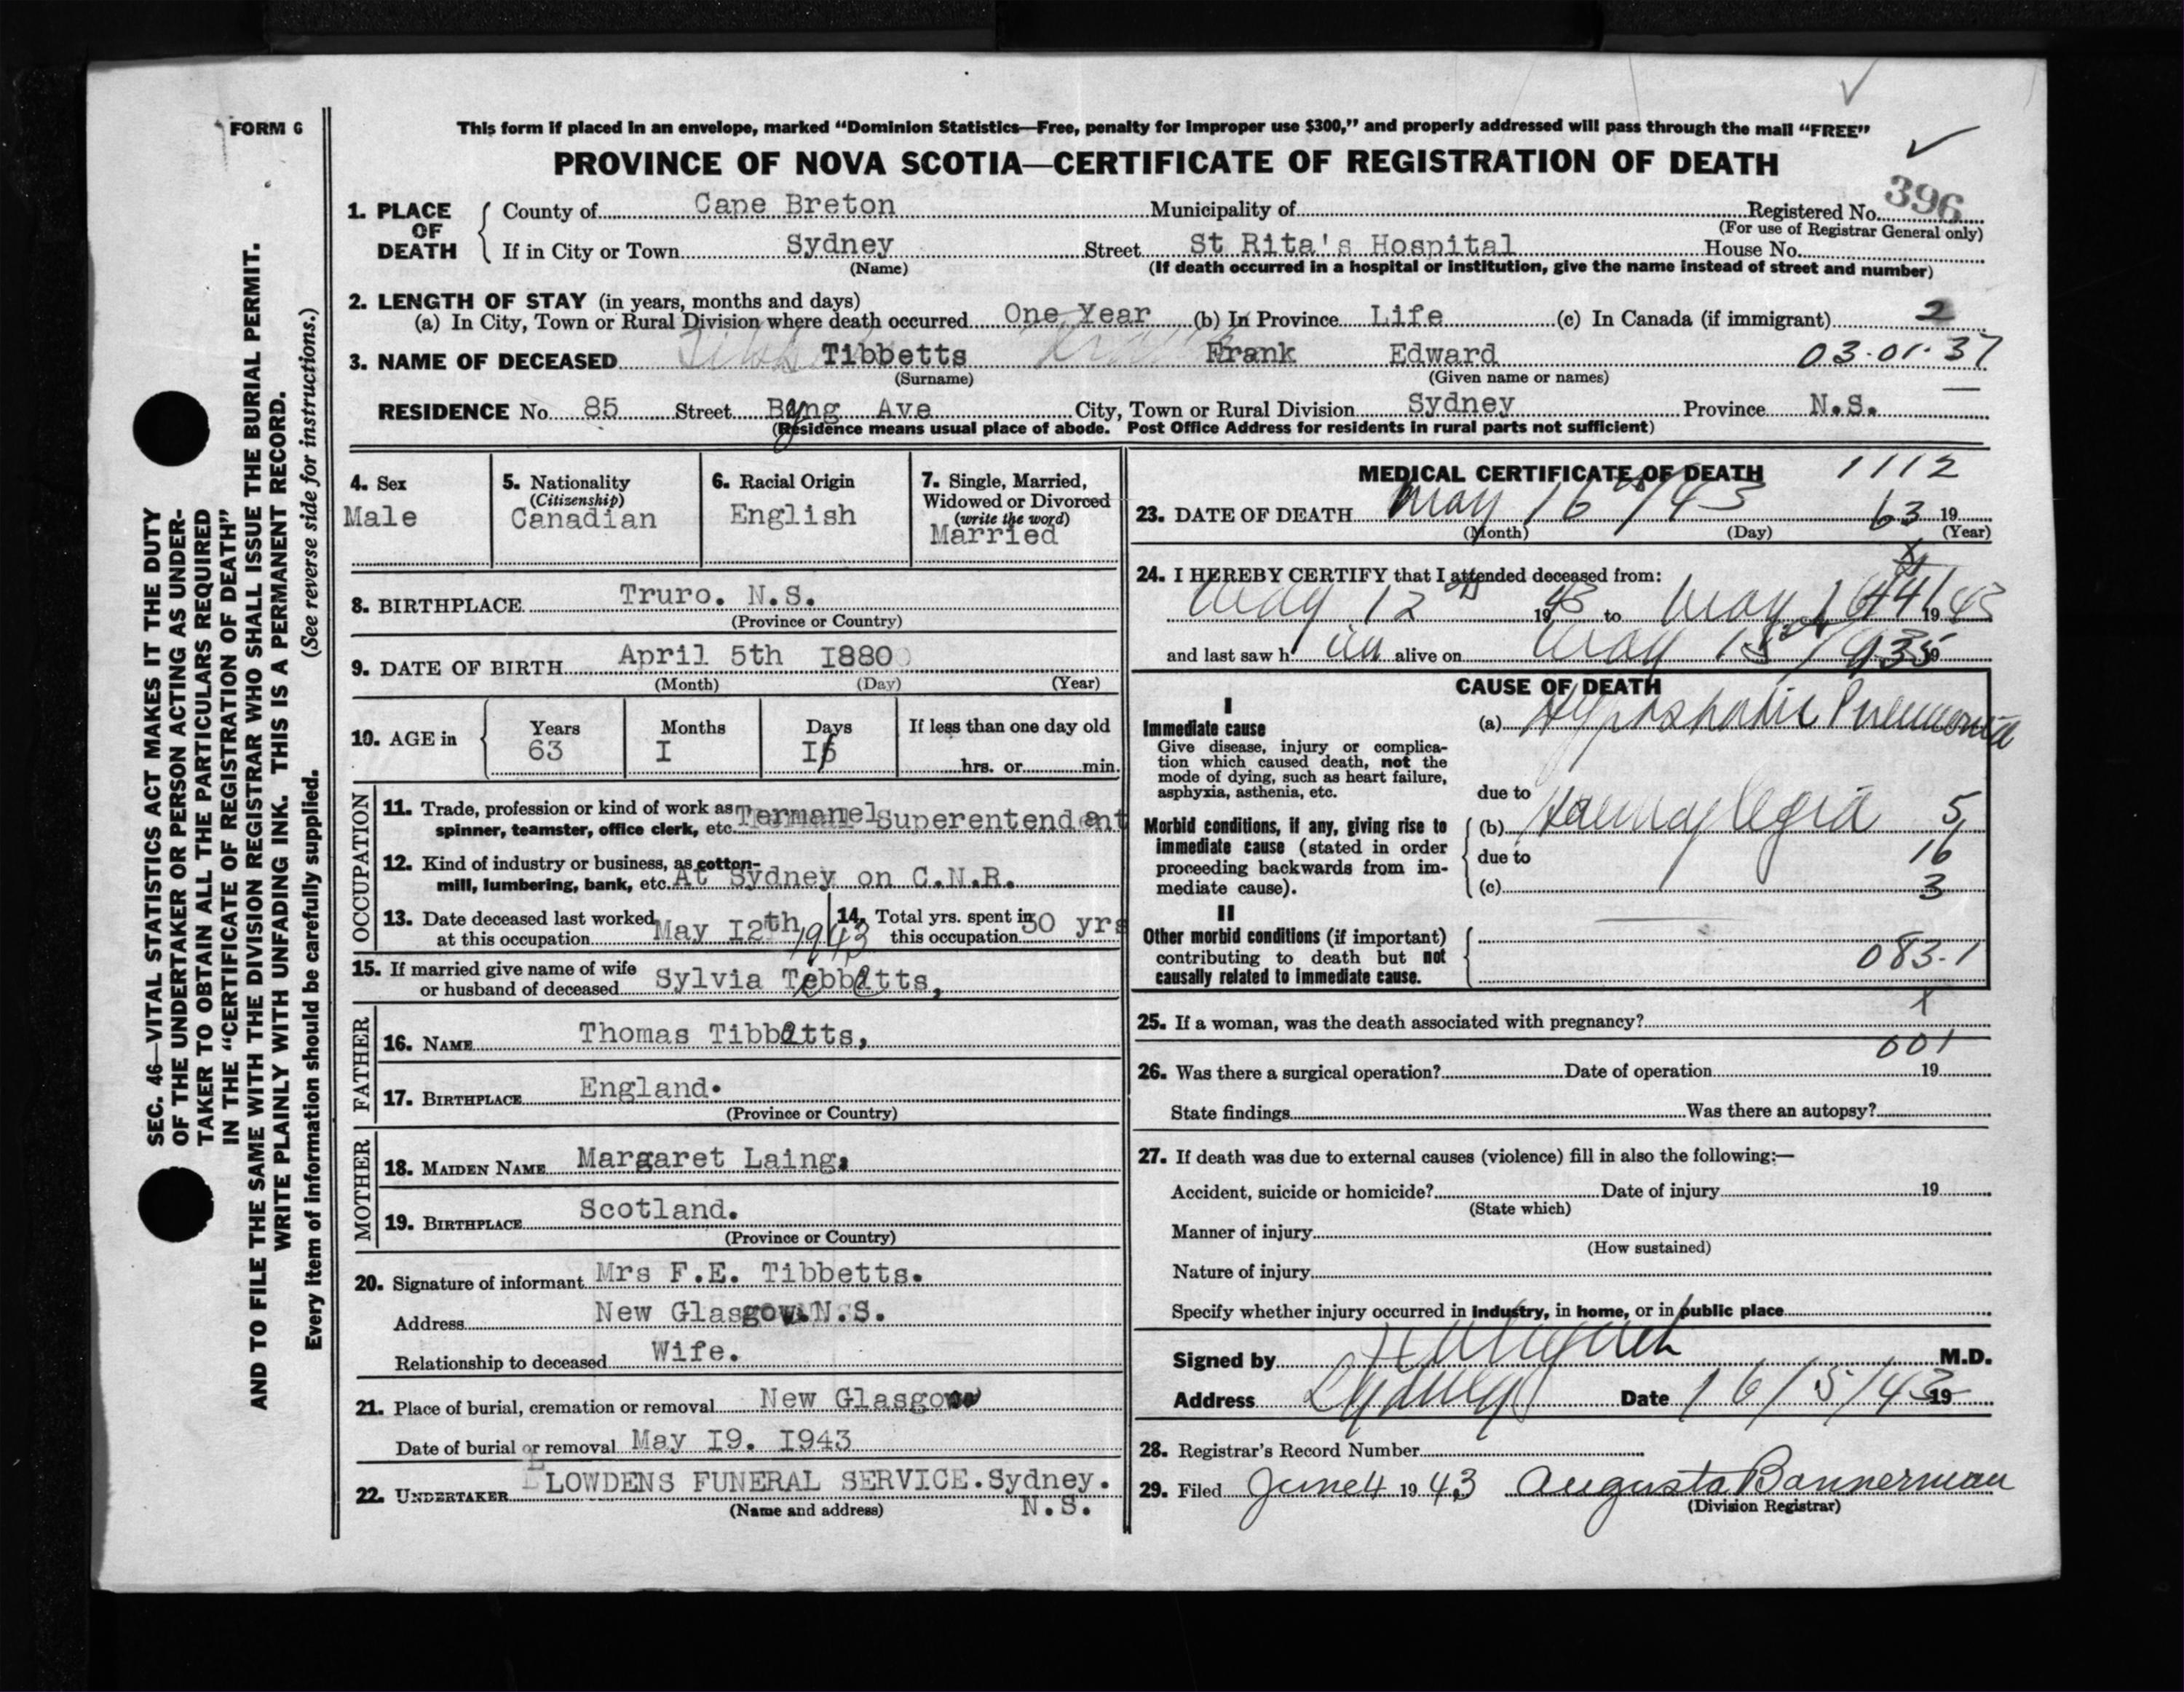 FORM G
This form if placed in an envelope, marked "Dominion Statistics—Free, penalty for improper use $300," and properly addressed will pass through the mail "FREE"
PROVINCE OF NOVA SCOTIA—CERTIFICATE OF REGISTRATION OF DEATH
396
1. PLACE OF DEATH
County of Cape Breton Municipality of Registered No.
(For use of Registrar General only)
If in City or Town Sydney Street St Rita's Hospital House No.
(Name) (If death occurred in a hospital or institution, give the name instead of street and number)
2. LENGTH OF STAY (in years, months and days)
(a) In City, Town or Rural Division where death occurred One Year (b) In Province Life (c) In Canada (if immigrant) 2
3. NAME OF DECEASED Tibbetts Frank Edward 03-01-37
(Surname) (Given name or names)
RESIDENCE No. 85 Street Byng Ave City, Town or Rural Division Sydney Province N.S.
(Residence means usual place of abode. Post Office Address for residents in rural parts not sufficient)
4. Sex
Male
5. Nationality
(Citizenship)
Canadian
6. Racial Origin
English
7. Single, Married,
Widowed or Divorced
(write the word)
Married
8. BIRTHPLACE Truro. N.S.
(Province or Country)
9. DATE OF BIRTH April 5th I880
(Month) (Day) (Year)
10. AGE in
Years Months Days If less than one day old
63 I
hrs. or min.
OCCUPATION
11. Trade, profession or kind of work as
spinner, teamster, office clerk, etc. Termanel Superentendant
12. Kind of industry or business, as cotton-
mill, lumbering, bank, etc. At Sydney on C.N.R.
13. Date deceased last worked
at this occupation May I2th 1943
14. Total yrs. spent in
this occupation 50 yrs
15. If married give name of wife
or husband of deceased Sylvia Tibbetts,
FATHER
16. NAME Thomas Tibbetts,
17. BIRTHPLACE England.
(Province or Country)
MOTHER
18. MAIDEN NAME Margaret Laing.
19. BIRTHPLACE Scotland.
(Province or Country)
20. Signature of informant Mrs F.E. Tibbetts.
Address New Glasgow.N.S.
Relationship to deceased Wife.
21. Place of burial, cremation or removal New Glasgow
Date of burial or removal May I9. I943
22. UNDERTAKER LOWDENS FUNERAL SERVICE.Sydney.
(Name and address) N.S.
MEDICAL CERTIFICATE OF DEATH 1112
23. DATE OF DEATH May 16th/43 63 19
(Month) (Day) (Year)
24. I HEREBY CERTIFY that I attended deceased from:
May 12th 1943 to May 16 441 1943
and last saw h im alive on May 15th 19
935
CAUSE OF DEATH
I
Immediate cause
Give disease, injury or complica-
tion which caused death, not the
mode of dying, such as heart failure,
asphyxia, asthenia, etc.
(a) Hypostatic Pneumonia
due to
Morbid conditions, if any, giving rise to
immediate cause (stated in order
proceeding backwards from im-
mediate cause).
(b) Haemaplegia 5
due to 16
(c) 3
II
Other morbid conditions (if important)
contributing to death but not
causally related to immediate cause.
083-1
X
25. If a woman, was the death associated with pregnancy?
001
26. Was there a surgical operation? Date of operation 19
State findings Was there an autopsy?
27. If death was due to external causes (violence) fill in also the following:—
Accident, suicide or homicide? Date of injury 19
(State which)
Manner of injury
(How sustained)
Nature of injury
Specify whether injury occurred in industry, in home, or in public place
Signed by M.D.
Address Sydney Date 16/5/43 19
28. Registrar's Record Number
29. Filed June 4 1943 Augusta Bannerman
(Division Registrar)
SEC. 46—VITAL STATISTICS ACT MAKES IT THE DUTY
OF THE UNDERTAKER OR PERSON ACTING AS UNDER-
TAKER TO OBTAIN ALL THE PARTICULARS REQUIRED
IN THE "CERTIFICATE OF REGISTRATION OF DEATH"
AND TO FILE THE SAME WITH THE DIVISION REGISTRAR WHO SHALL ISSUE THE BURIAL PERMIT.
WRITE PLAINLY WITH UNFADING INK. THIS IS A PERMANENT RECORD.
Every item of information should be carefully supplied. (See reverse side for instructions.)